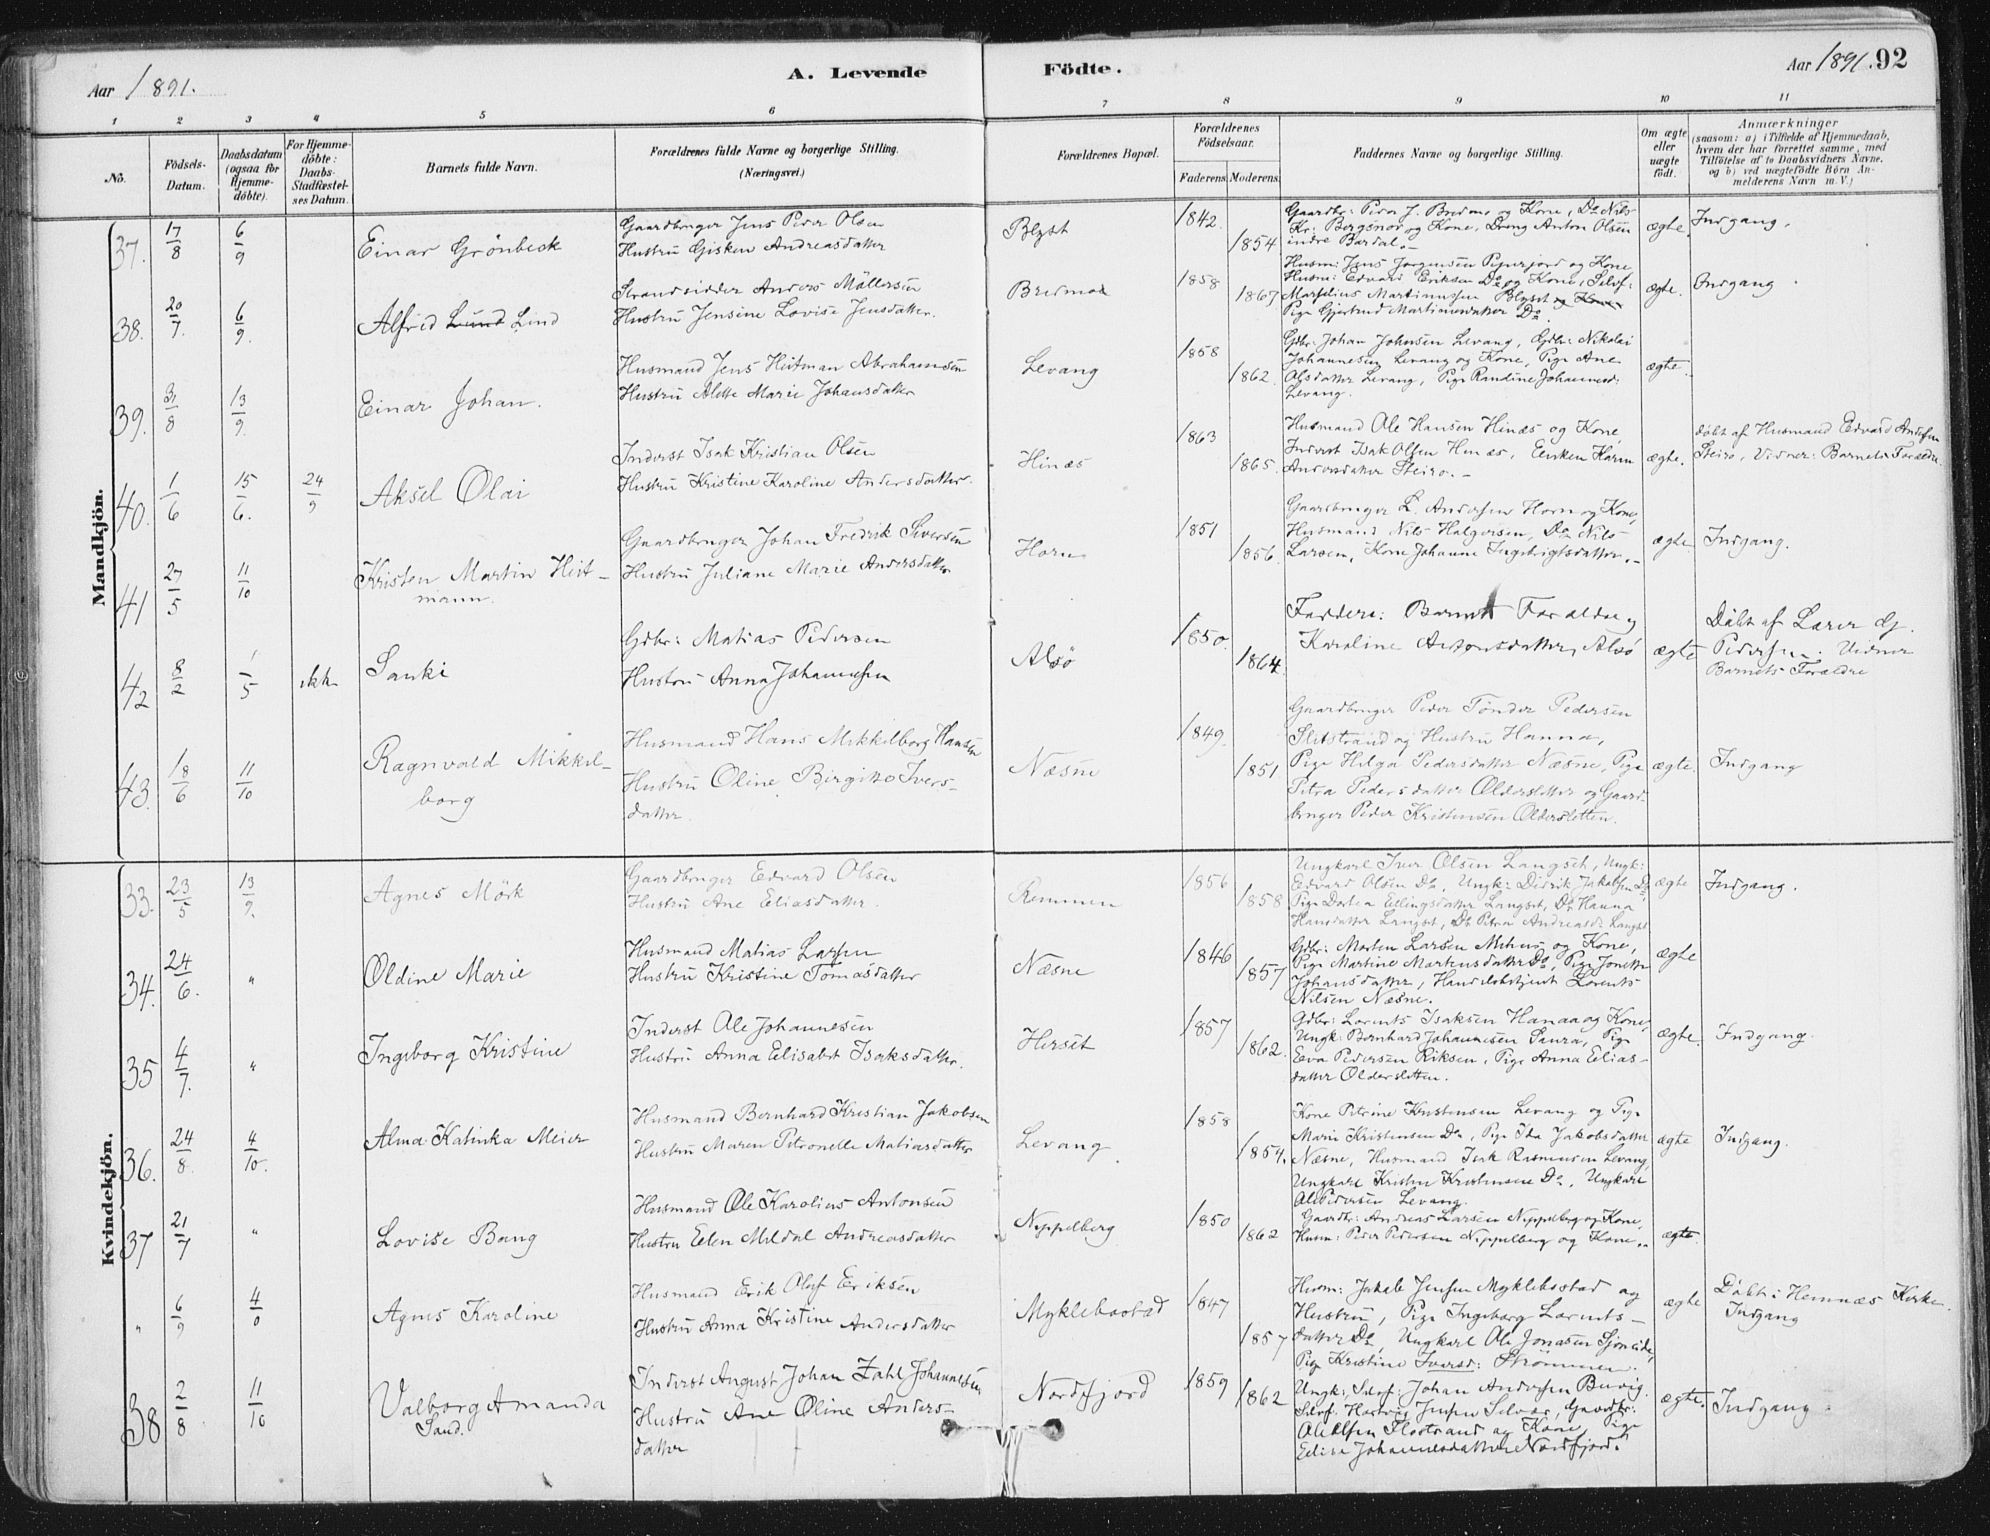 Aar 1891.
A. Levende
Födte.
Aar 1891. 92
1 2 3 4 5 6 7 8 9 10 11
No.
Födsels-Datum.
Daabsdatum (ogsaa for Hjemme-döbte).
For Hjemme-döbte: Daabs-Stadfæstel-ses Datum.
Barnets fulde Navn.
Forældrenes fulde Navne og borgerlige Stilling.
(Næringsvei.)
Forældrenes Bopæl.
Forældrenes Födselsaar.
Faderens. Moderens.
Faddernes Navne og borgerlige Stilling.
Om ægte eller uægte födt.
Anmærkninger
(saasom: a) i Tilfælde af Hjemmedaab,
hvem der har forrettet samme, med
Tilföielse af to Daabsvidners Navne.
og b) ved uægtefödte Börn An-
melderens Navn m. V.)
Mandkjön.
37. 17/8 6/9 Einar Grönbeck
Gaardbruger Jens Peder Olsen
Hustru Gisken Andreasdatter
Blyst 1842. 1854
Gaardbr: Peder J. Bredmo og Kone, Do Nils
Kr: Bergsnov og Kone, Dreng Anton Olsen
indre Bardal.
ægte. Indgang.
38. 20/7. 6/9. Alfred Lund Lind
Strandsidder Anders Möllersen
Hustru Jensine Lovise Jensdatter.
Bredmoen 1858 1867
Husm: Jens Jörgensen Peperfjord og Kone
Husm: Edvard Eriksen Do og Kone, Selvf:
Marselius Martinussen Blyset og Kone
Pige Gjertrud Martinusdatter Do
ægte. Indgang.
39. 31/8 13/9. Einar Johan.
Husmand Jens Heitman Abrahamsen
Hustru Alette Marie Johansdatter
Levang 1858 1862.
Gdbr: Johan Johnsen Levang, Gdbr: Nikolai
Johannesen Levang og Kone, Pige Ane
Olsdatter Levang, Pige Randine Johannesd:
Levang.
ægte.
40. 1/6 15/6. 24/9 Aksel Olai
Inderst Isak Kristian Olsen
Hustru Kristine Karoline Andersdatter.
Hinæs 1863 1865.
Husmand Ole Hansen Hinæs og Kone,
Inderst Isak Olsen Hinæs, Enken Karen
Andersdatter Steiro.
ægte.
döbt af Husmand Edvard Andersen
Steiro, Vidner: Barnets Forældre.
41 27/5 11/10 Kristen Martin Heit-
mann.
Gaardbruger Johan Fredrik Siversen
Hustru Juliane Marie Andersdatter
Horn 1851 1856.
Gaardbruger L. Andersen Horn og Kone,
Husmand Nils Halgersen, Do Nils
Larsen, Kone Johanne Ingebrigtsdatter.
ægte Indgang.
42 8/2 1/5 ikke Sanki
Gdbr: Matias Pedersen
Hustru Anna Johannesen
Alsö 1850. 1864.
Faddere: Barnets Forældre og
Karoline Antonsdatter, Alsö
ægte
Döbt af Lærer G.
Pedersen. Vidner
Barnets Forældre
43. 18/6 11/10 Ragnvald Mikkel-
borg
Husmand Hans Mikkelborg Hansen
Hustru Oline Birgitte Ivers-
datter.
Næsne 1849. 1851
Gaardbruger Peder Tönder Pedersen
Slitstrand og Hustru Hanna,
Pige Helga Pedersdatter Næsne, Pige
Petra Pedersdatter Oldersletten og Gaard-
bruger Peder Kristensen Oldersletten.
ægte Indgang
Kvindekjön.
33. 23/5 13/9. Agnes Mörk
Gaardbruger Edvard Olsen
Hustru Ane Eliasdatter.
Remmen 1856 1858
Ungkarl Iver Olsen Langset, Ungk:
Edvard Olsen Do, Ungk: Didrik Jakobsen Do
Pige Dortea Ellingsdatter Langset, Do Hanna
Hansdatter Langset, Do Petra Andreasd: Langset
ægte Indgang.
34. 24/6. " Oldine Marie
Husmand Matias Larsen
Hustru Kristine Tomasdatter
Næsne 1846 1857
Gdbr: Morten Larsen Mehus og Kone,
Pige Martine Martensdatter Do, Pige Jonette
Johansdatter, Handelsbetjent Lorents
Nilsen Næsne.
ægte
35 4/7. " Ingeborg Kristine
Inderst Ole Johannesen
Hustru Anna Elisabet Isaksdatter.
Herset 1857 1862.
Gdbr: Lorents Isaksen Hanaa og Kone,
Ungk: Bernhard Johannesen Saura, Pige
Eva Pedersen Riksen, Pige Anna Elias-
datter Oldersletten.
ægte. Indgang.
36. 24/8. 4/10. Alma Katinka Meier
Husmand Bernhard Kristian Jakobsen
Hustru Maren Petronelle Matiasdatter
Levang 1858 1854.
Kone Petrine Kristensen Levang og Pige
Marie Kristensen Do, Pige Ida Jakobsdatter
Næsne, Husmand Isak Rasmussen Levang,
Ungkarl Kristen Kristensen Do, Ungkarl
Ole Pedersen Levang.
ægte Indgang.
37 21/7 " Lovise Bang
Husmand Ole Karolius Antonsen
Hustru Elen Meldal Andreasdatter
Nippelberg 1850 1862
Gaardbr: Andreas Larsen Nippelberg og Kone,
Husm: Peder Pedersen Nippelberg og Kone.
ægte.
" 6/9 4/0 Agnes Karoline
Husmand Erik Olaf Eriksen
Hustru Anna Kristine Andersdatter
Myklebostad 1847 1857
Husm: Jakob Jensen Myklebostad og
Hustru, Pige Ingeborg Lorents-
datter Do, Ungkarl Ole Jonasen Sjoneide,
Pige Kristine Iversd: Strömmen.
ægte
Döbt i Hemnæs Kirke.
Indgang
38 2/8 11/10 Valborg Amanda
Sand.
Inderst August Johan Zahl Johannesen
Hustru Ane Oline Anders-
datter
Nordfjord 1859 1862
Ungk: Selvf: Johan Andersen Buvig.
Selvf: Hartvig Jensen Selvær, Gaardbr:
Ole Olsen Flostrand og Kone, Pige
Elise Johannesdatter Nordfjord.
ægte. Indgang.